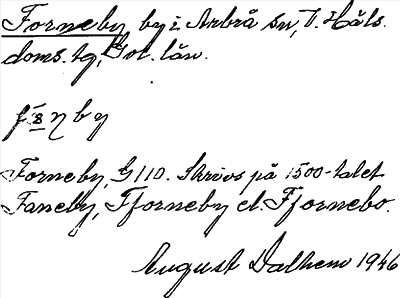 Forneby by i Arbrå sn, V. Häls.
doms. hg, Gvl. län.
Forneby, G 110. Skrivs på 1500-talet
Faneby, Fforneby el. Ffornebo.
August Dalhem 1946